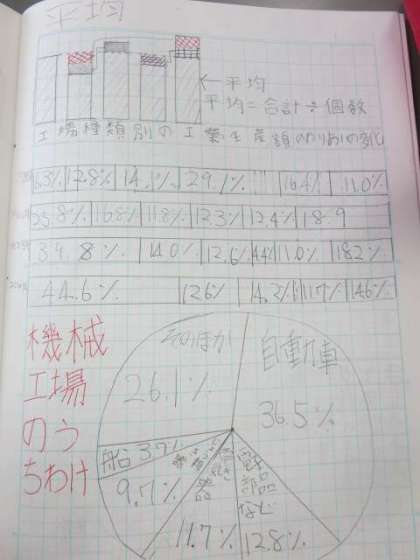 平均
←平均
平均=合計÷個数
工場種類別の工業生産額のわりあいの変化
12.8% 14.1% 29.1% 16.4% 11.0%
16.8% 11.8% 12.3% 12.4% 18.9
34.8% 14.0% 12.6% 11.0% 18.2%
44.6% 12.6% 14.2% 11.7% 14.6%
機械
工場
のう
ちわけ
そのほか
26.1%
自動車
36.5%
船 3.7%
9.7%
11.7%
電子
部品
など
12.8%